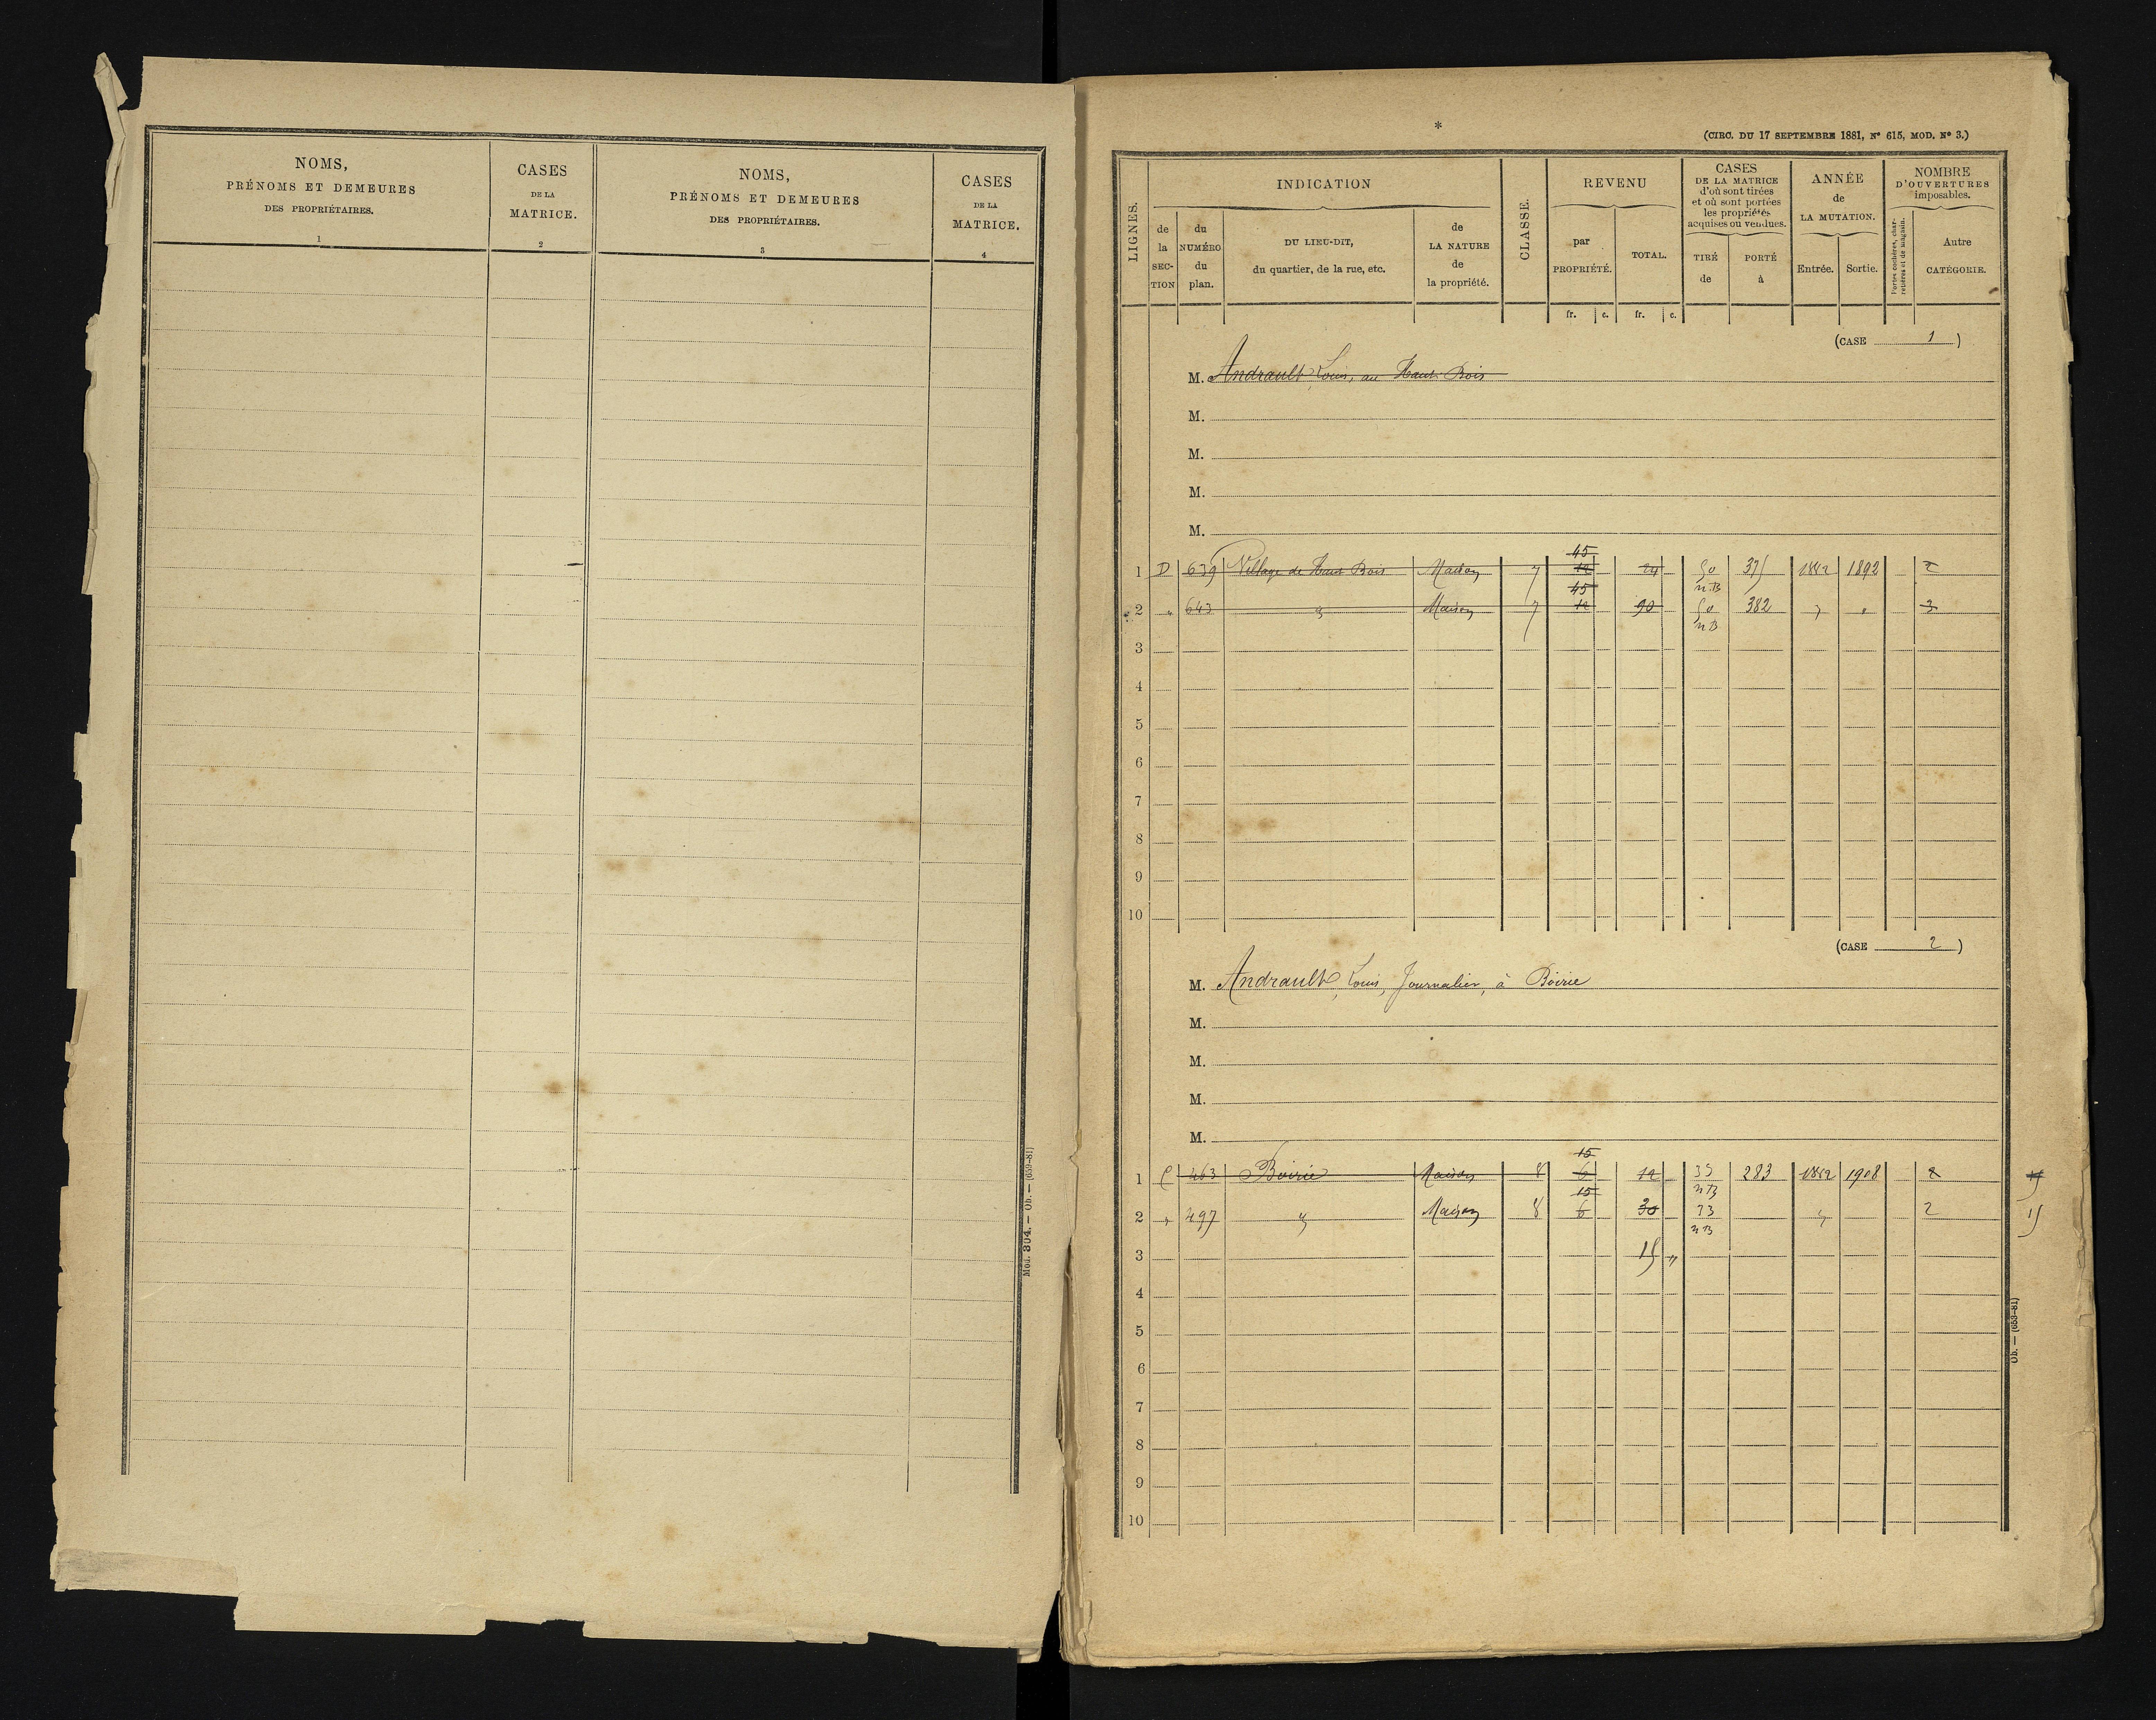 NOMS,
PRÉNOMS ET DEMEURES
DES PROPRIÉTAIRES.
1
CASES
DE LA
MATRICE.
2
NOMS,
PRÉNOMS ET DEMEURES
DES PROPRIÉTAIRES.
3
CASES
DE LA
MATRICE.
4
Mod. 304. — Ob. — (659-81)
*
(CIRC. DU 17 SEPTEMBRE 1881, Nº 615, MOD. Nº 3.)
LIGNES.
INDICATION
de
la
SEC-
TION
du
NUMÉRO
du
plan.
DU LIEU-DIT,
du quartier, de la rue, etc.
de
LA NATURE
de
la propriété.
CLASSE.
REVENU
par
PROPRIÉTÉ.
TOTAL.
CASES
DE LA MATRICE
d'où sont tirées
et où sont portées
les propriétés
acquises ou vendues.
TIRÉ
de
PORTÉ
à
ANNÉE
de
LA MUTATION.
Entrée.
Sortie.
NOMBRE
D'OUVERTURES
imposables.
Portes cochères, char-
retières et de magasin.
Autre
CATÉGORIE.
fr. c. fr. c.
(CASE 1)
M. Andrault Louis, au Haut Bois
M.
M.
M.
M.
45
1 D 639 Village de Haut Bois Maison 7 12 24 50 375 1882 1892 2
45 n.B
2 " 643 " Maison 7 12 90 50 382 " " 3
n B
3
4
5
6
7
8
9
10
(CASE 2)
M. Andrault, Louis, Journalier, à Boirie
M.
M.
M.
M.
15
1 C 463 Boirie Maison 8 6 12 33 283 1882 1908 2 15
15 n B
2 " 497 " Maison 8 6 30 33 " 2 15
n B
3 15 "
4
5
6
7
8
9
10
Ob. — (653-81)